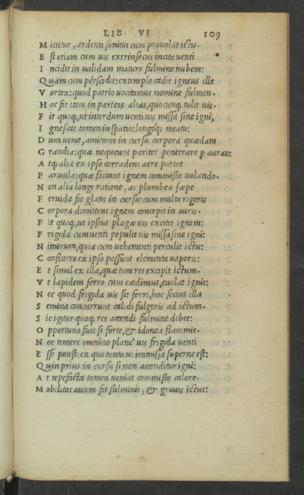 LIB· VI 109
M ittitur, ardenti sonitu cum prouolat ictu·
E st etiam cum uis extrinsecus incita uenti
I ncidit in ualidam maturo fulmine nubem:
Q uam cum perscidit: extemplo cadit igneus ille
V ortex: quod patrio uocitamus nomine fulmen·
H oc fit item in partes alias, quocunq; tulit uis·
F it quoq; ut interdum uenti uis missa sine igni,
I gnescat tamen in spatio: longoq; meatu:
D um uenit, amittens in cursu corpora quædam
G randia: quæ nequeunt pariter penetrare p auras:
A tq; alia ex ipso corradens aere portat
P aruula: quæ faciunt ignem commista uolando·
N on alia longe ratione, ac plumbea sæpe
F eruida fit glans in cursu: cum multa rigoris
C orpora dimittens ignem concepit in auris·
F it quoq; ut ipsius plagæ uis excitet ignem:
F rigida cum uenti pepulit uis missa sine igni:
N imirum, quia cum uehementi perculit ictu:
C onfluere ex ipso possunt elementa uaporis:
E t simul ex illa, quæ tum res excipit ictum·
V t lapidem ferro cum cædimus, euolat ignis:
N ec quod frigida uis sit ferri, hoc secius illa
S emina concurrunt calidi fulgoris ad ictum·
S ic igitur quoq; res accendi fulmine debet:
O pportuna fuit si forte, & idonea flammis·
N ec temere omnino plane uis frigida uenti
E sse potest: ex quo tenta ui immissa superne est:
Q uin prius in cursu si non accenditur igni:
A t tepefacta tamen ueniat commista calore·
M obilitas autem fit fulminis, & grauis ictus: